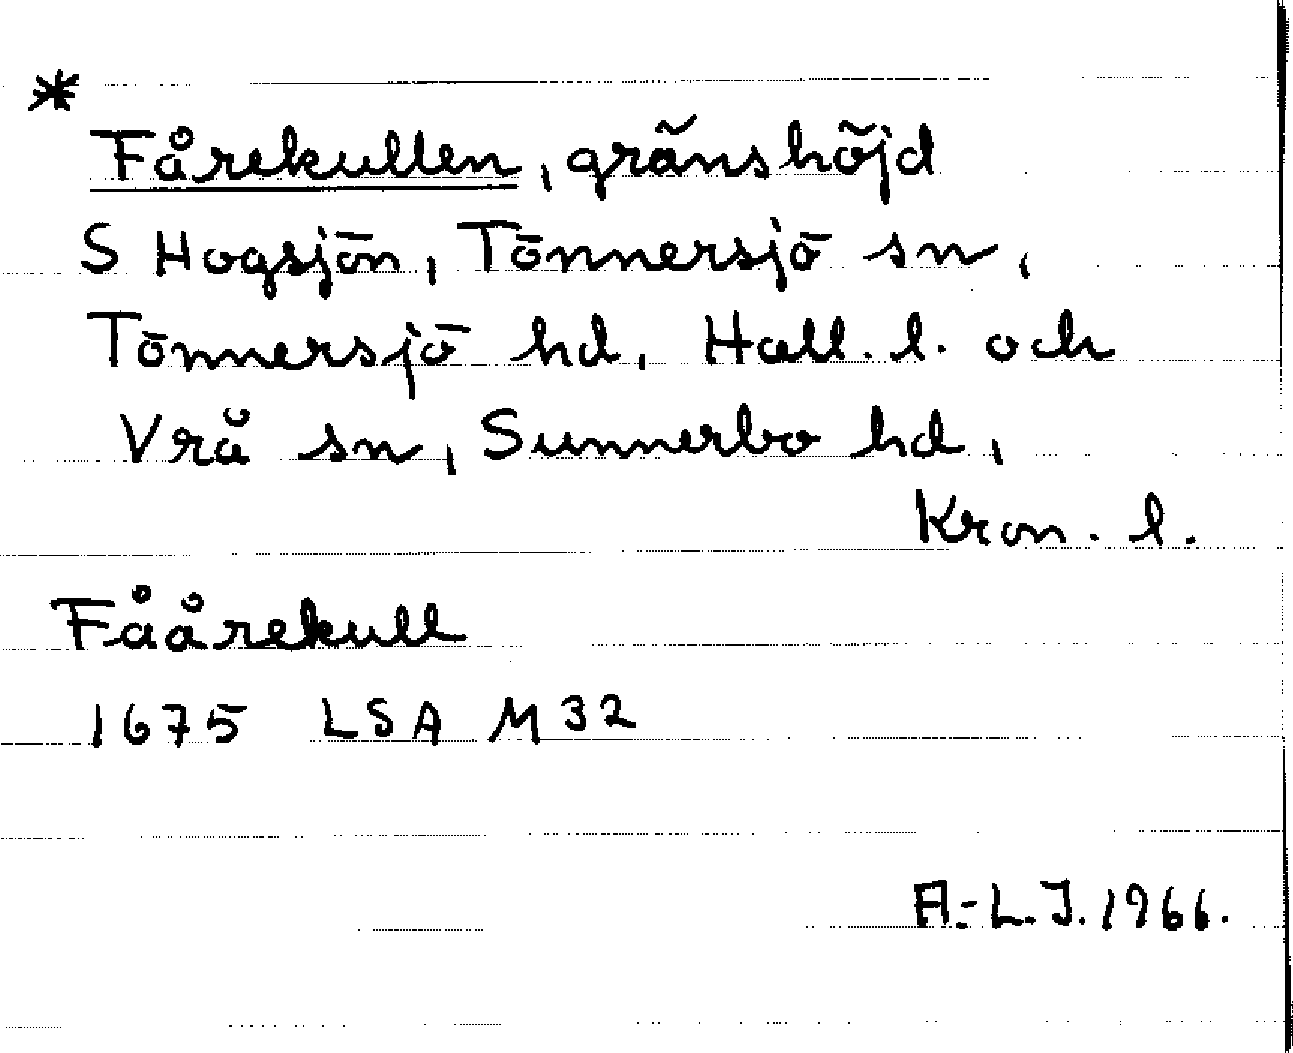 *
Fårekullen, gränshöjd
S Hogsjön, Tönnersjö sn,
Tönnersjö hd, Hall. l. och
Vrå sn, Sunnerbo hd,
Kron. l.
Fåårekull
1675 LSA M32
A.-L.J. 1966.